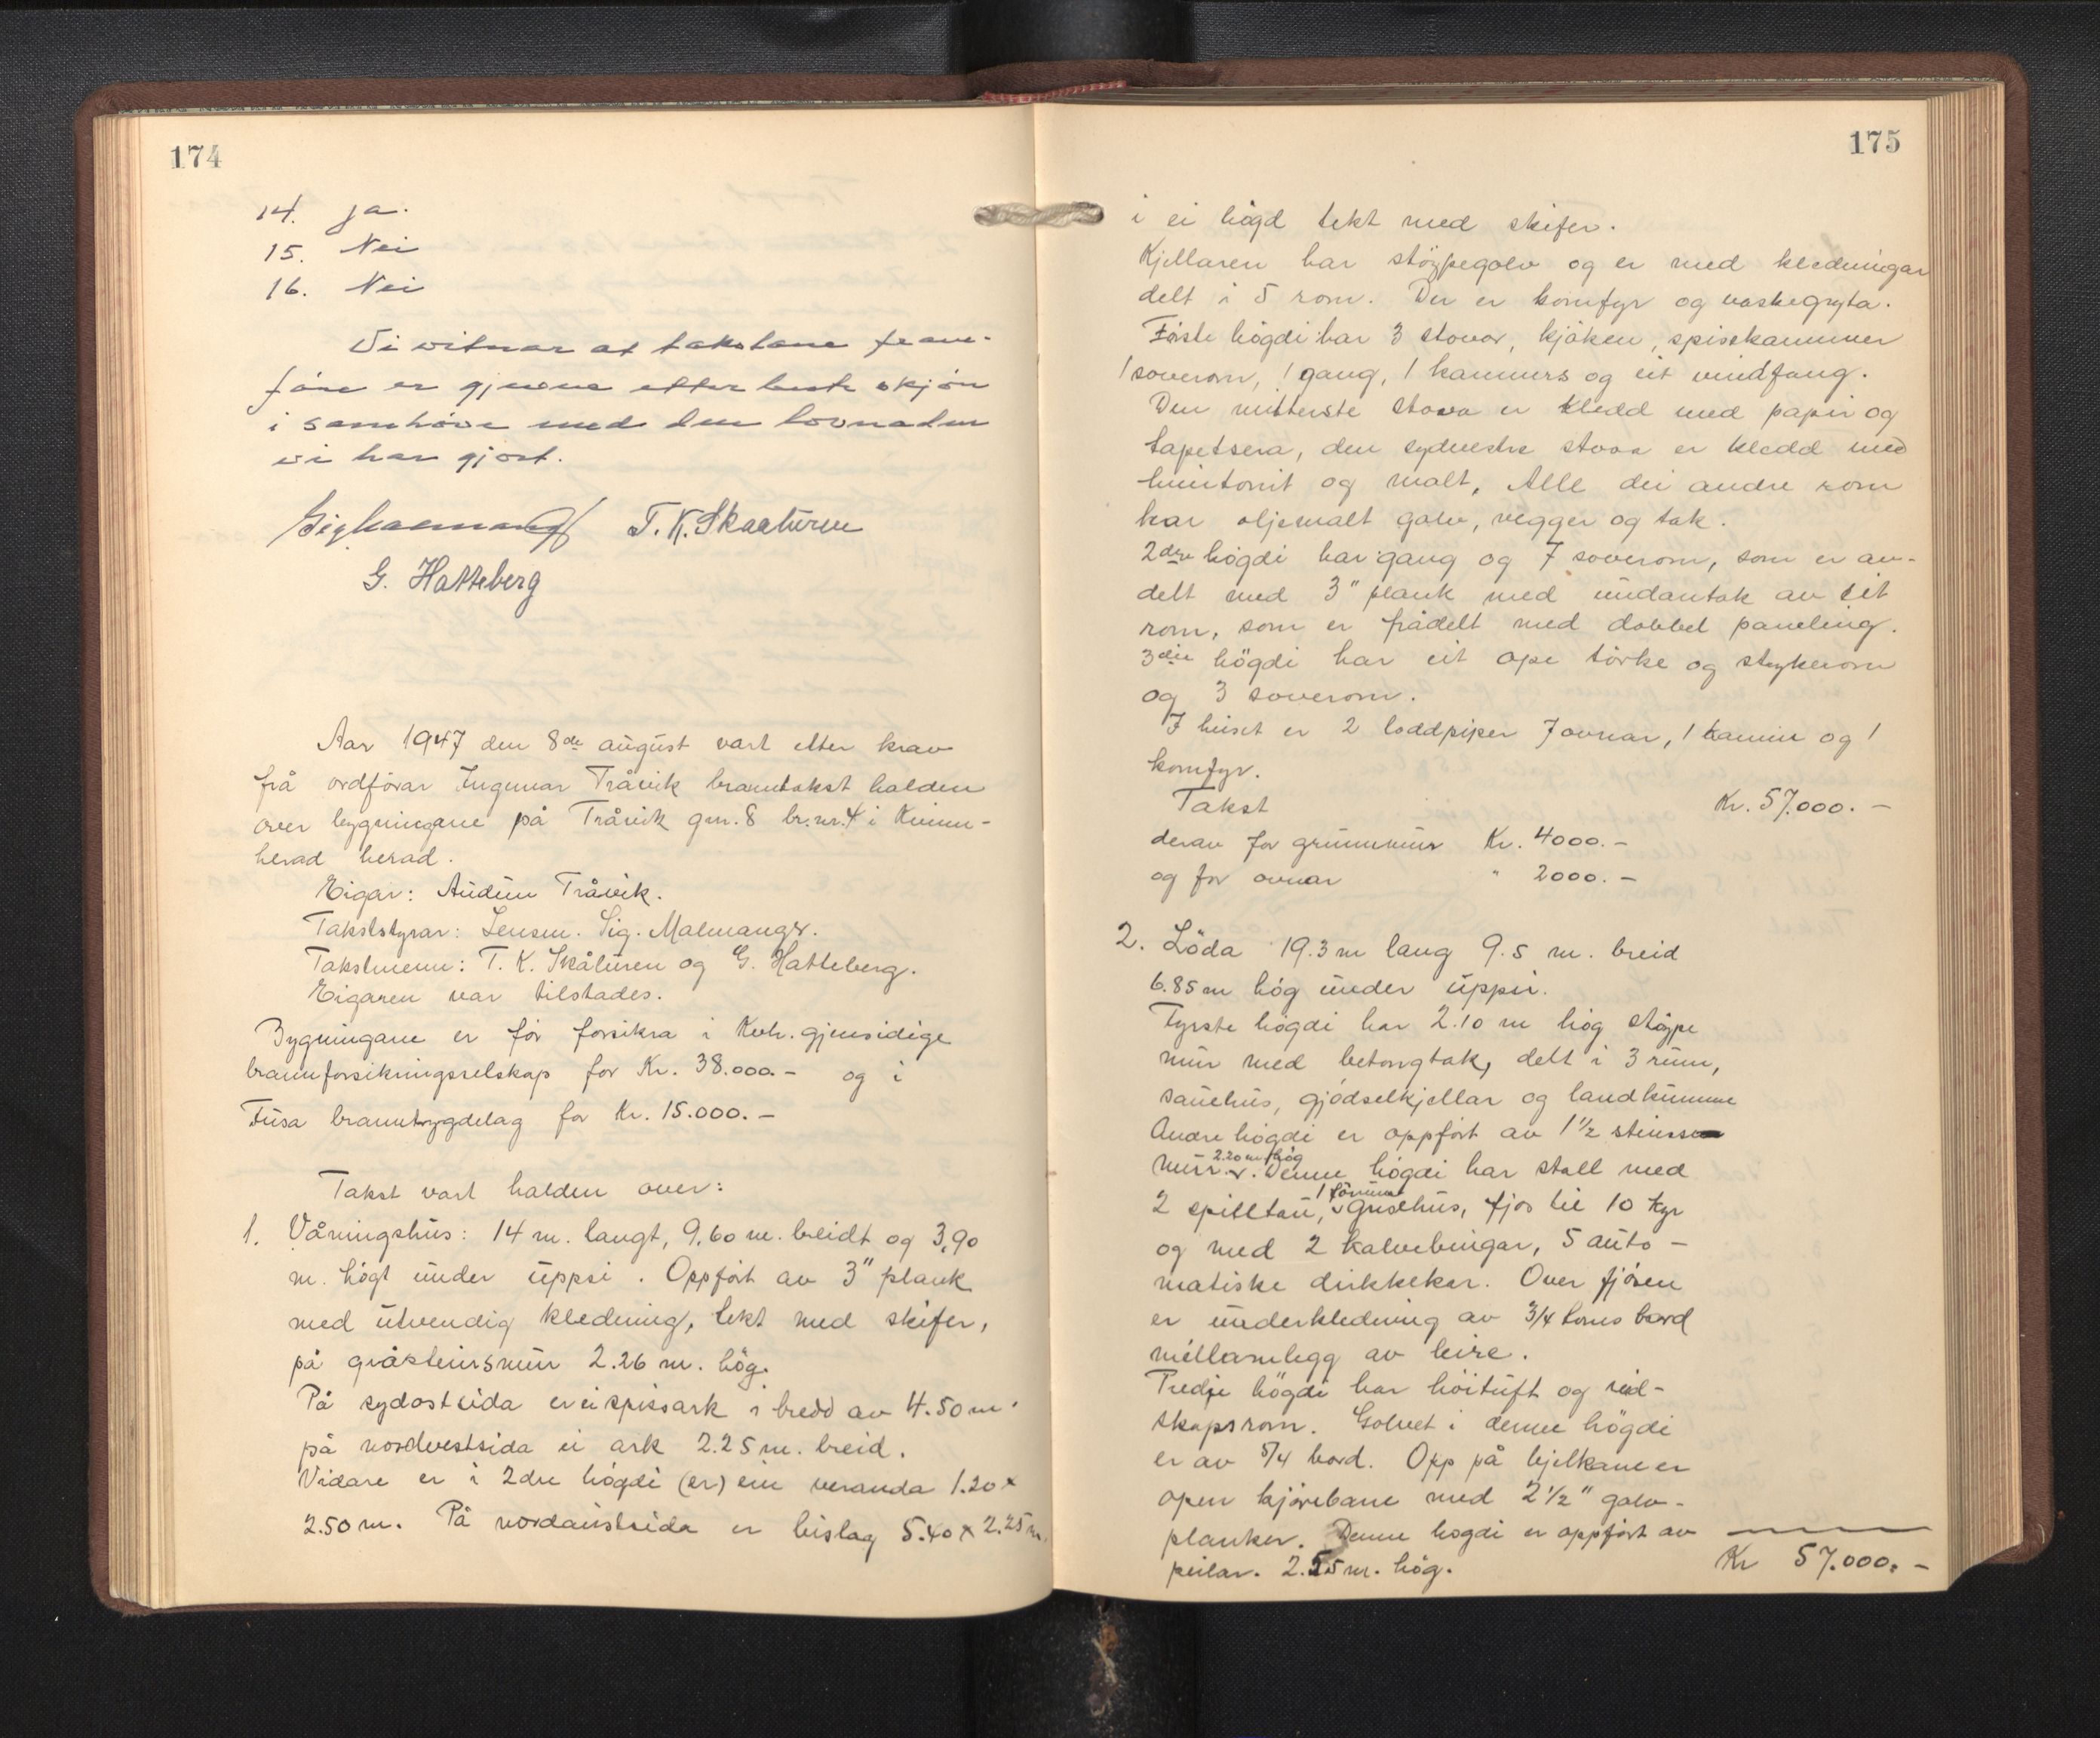 174
14. Ja.
15. Nei
16. Nei
Vi vitnar at takstane fram-
före er gjevne etter beste skjön
i samhöve med den lovnaden
vi har gjort.
Sig Malmanger T. K. Skaaluren
G. Hatteberg
Aar 1947 den 8de august vart etter krav
frå ordförar Ingmar Tråvik branntakst halden
over bygningane på Tråvik gnr. 8 br.nr. 4 i Kvinn-
herad herad.
Eigar: Audun Tråvik.
Takststyrar: Lensm. Sig. Malmanger.
Takstmenn: T. K. Skåluren og G. Hatteberg.
Eigaren var tilstades.
Bygningane er för forsikra i Kvh. gjensidige
brannforsikringsselskap for Kr. 38.000.- og i
Fusa branntrygdelag for Kr. 15.000.-
Takst vart halden over:
1. Våningshus: 14 m. langt, 9.60 m. breidt og 3.90
m. högt under uppsi. Oppfört av 3" plank
med utvendig kledning, tekt med skifer,
på gråsteinsmur 2.26 m. hög.
På sydostsida er ei spissark i bredd av 4.50 m.
på nordvestsida ei ark 2.25 m. breid.
Vidare er i 2dre högdi (er) ein veranda 1.20 x
2.50 m. På nordaustsida er bislag 5.40 x 2.25 m.
175
i ei högd tekt med skifer.
Kjellaren har støypegolv og er med kledningar
delt i 5 rom. Der er komfyr og vaskegryta.
Förste högdi har 3 stovor, kjöken, spisekammer
1 soverom, 1 gang, 1 kammers og eit vindfang.
Den nitterste stova er kledd med papir og
tapetsera, den sydvestre stova er kledd med
huntonit og malt. Alle dei andre rom
har oljemalt golv, vegger og tak.
2dre högdi har gang og 7 soverom, som er av-
delt med 3" plank med undantak av eit
rom, som er frådelt med dobbel paneling.
3die högdi har eit ope törke og strykerom
og 3 soverom.
I huset er 2 loddpiper 7 ovnar, 1 kamin og 1
komfyr.
Takst Kr. 57.000.-
derav for grunnmur Kr. 4000.-
og for ovnar " 2000.-
2. Löda 19.3 m lang 9.5 m. breid
6.85 m hög under uppsi.
Fyrste högdi har 2.10 m hög støype
mur med betongtak, delt i 3 rum,
sauehus, gjödselkjellar og landkumme
Andre högdi er oppfört av 1½ steins
mur 2.20 m hög. Denne högdi har stall med
2 spilltau, 1 törrum grisehus, fjos til 10 kyr
og med 2 kalvebingar, 5 auto-
matiske drikkekar. Over fjösen
er underkledning av 3/4 toms bord
mellamlegg av leire.
Tredje högdi har höituft og reid-
skapsrom. Golvet i denne högdi
er av 5/4 bord. Opp på bjelkane er
open kjörebane med 2½" golv-
planker. Denne högdi er oppfört av
peilar. 2.55 m. hög.
Kr 57.000.-